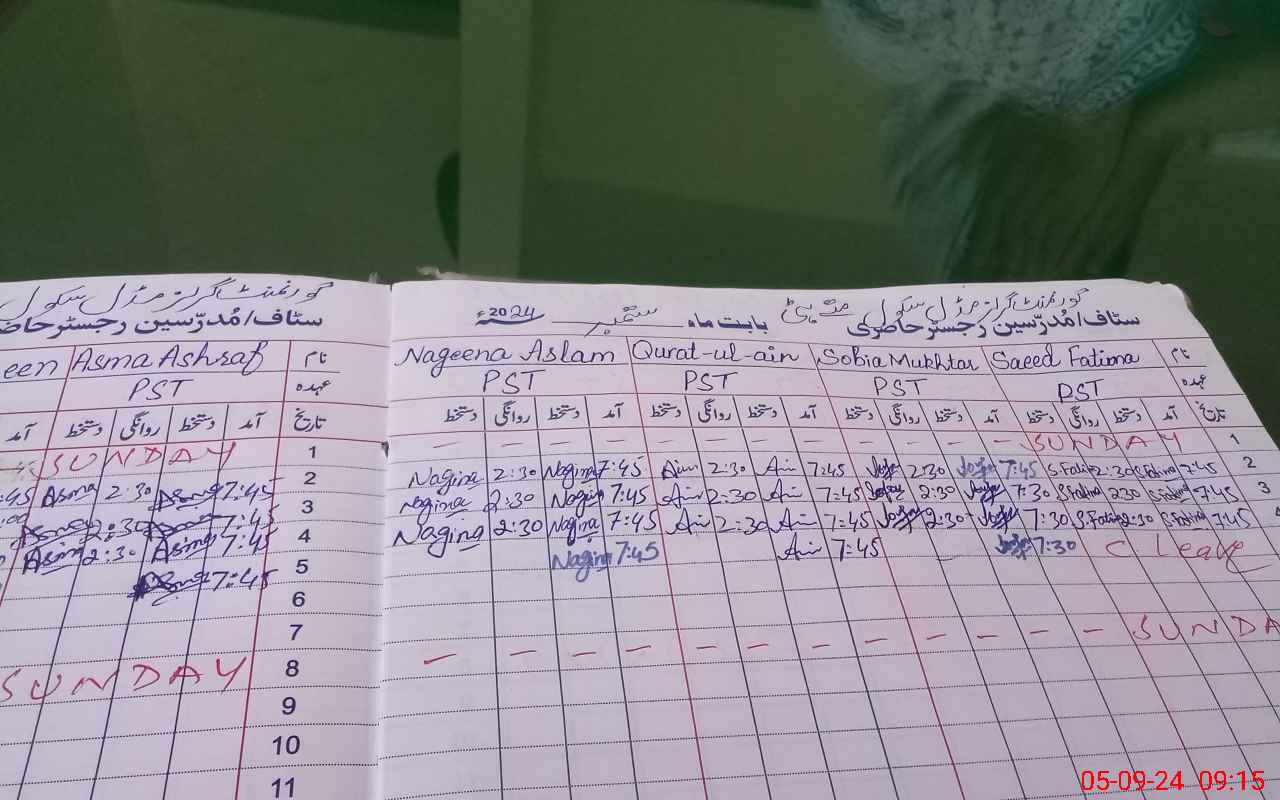 گورنمنٹ گرلز مڈل سکول
سٹاف/مُدرّسین رجسٹر حاض
een Asma Ashraf نام
PST عہدہ
آمد دستخط روانگی دستخط آمد تاریخ
SUNDAY 1
:45 Asma 2:30 Asma 7:45 2
Asma 2:30 Asma 7:45 3
Asma 2:30 Asma 7:45 4
Asma 7:45 5
6
7
SUNDAY 8
9
10
11
گورنمنٹ گرلز مڈل سکول
سٹاف/مُدرّسین رجسٹر حاضری بابت ماہ ستمبر سنہ 2024ء
Nageena Aslam Qurat-ul-ain Sobia Mukhtar Saeed Fatima نام
PST PST PST PST عہدہ
دستخط روانگی دستخط آمد دستخط روانگی دستخط آمد دستخط روانگی دستخط آمد دستخط روانگی دستخط آمد تاریخ
– – – – – – – – – – – SUNDAY 1
Nagina 2:30 Nagina 7:45 Ain 2:30 Ain 7:45 2:30 7:45 S.Fatima 2:30 S.Fatima 7:45 2
Nagina 2:30 Nagina 7:45 Ain 2:30 Ain 7:45 2:30 7:30 S.Fatima 2:30 S.Fatima 7:45 3
Nagina 2:30 Nagina 7:45 Ain 2:30 Ain 7:45 2:30 7:30 S.Fatima 2:30 S.Fatima 7:45
Nagina 7:45 Ain 7:45 7:30 C. Leave
– – – – – – – – – – – – SUNDA
05-09-24 09:15